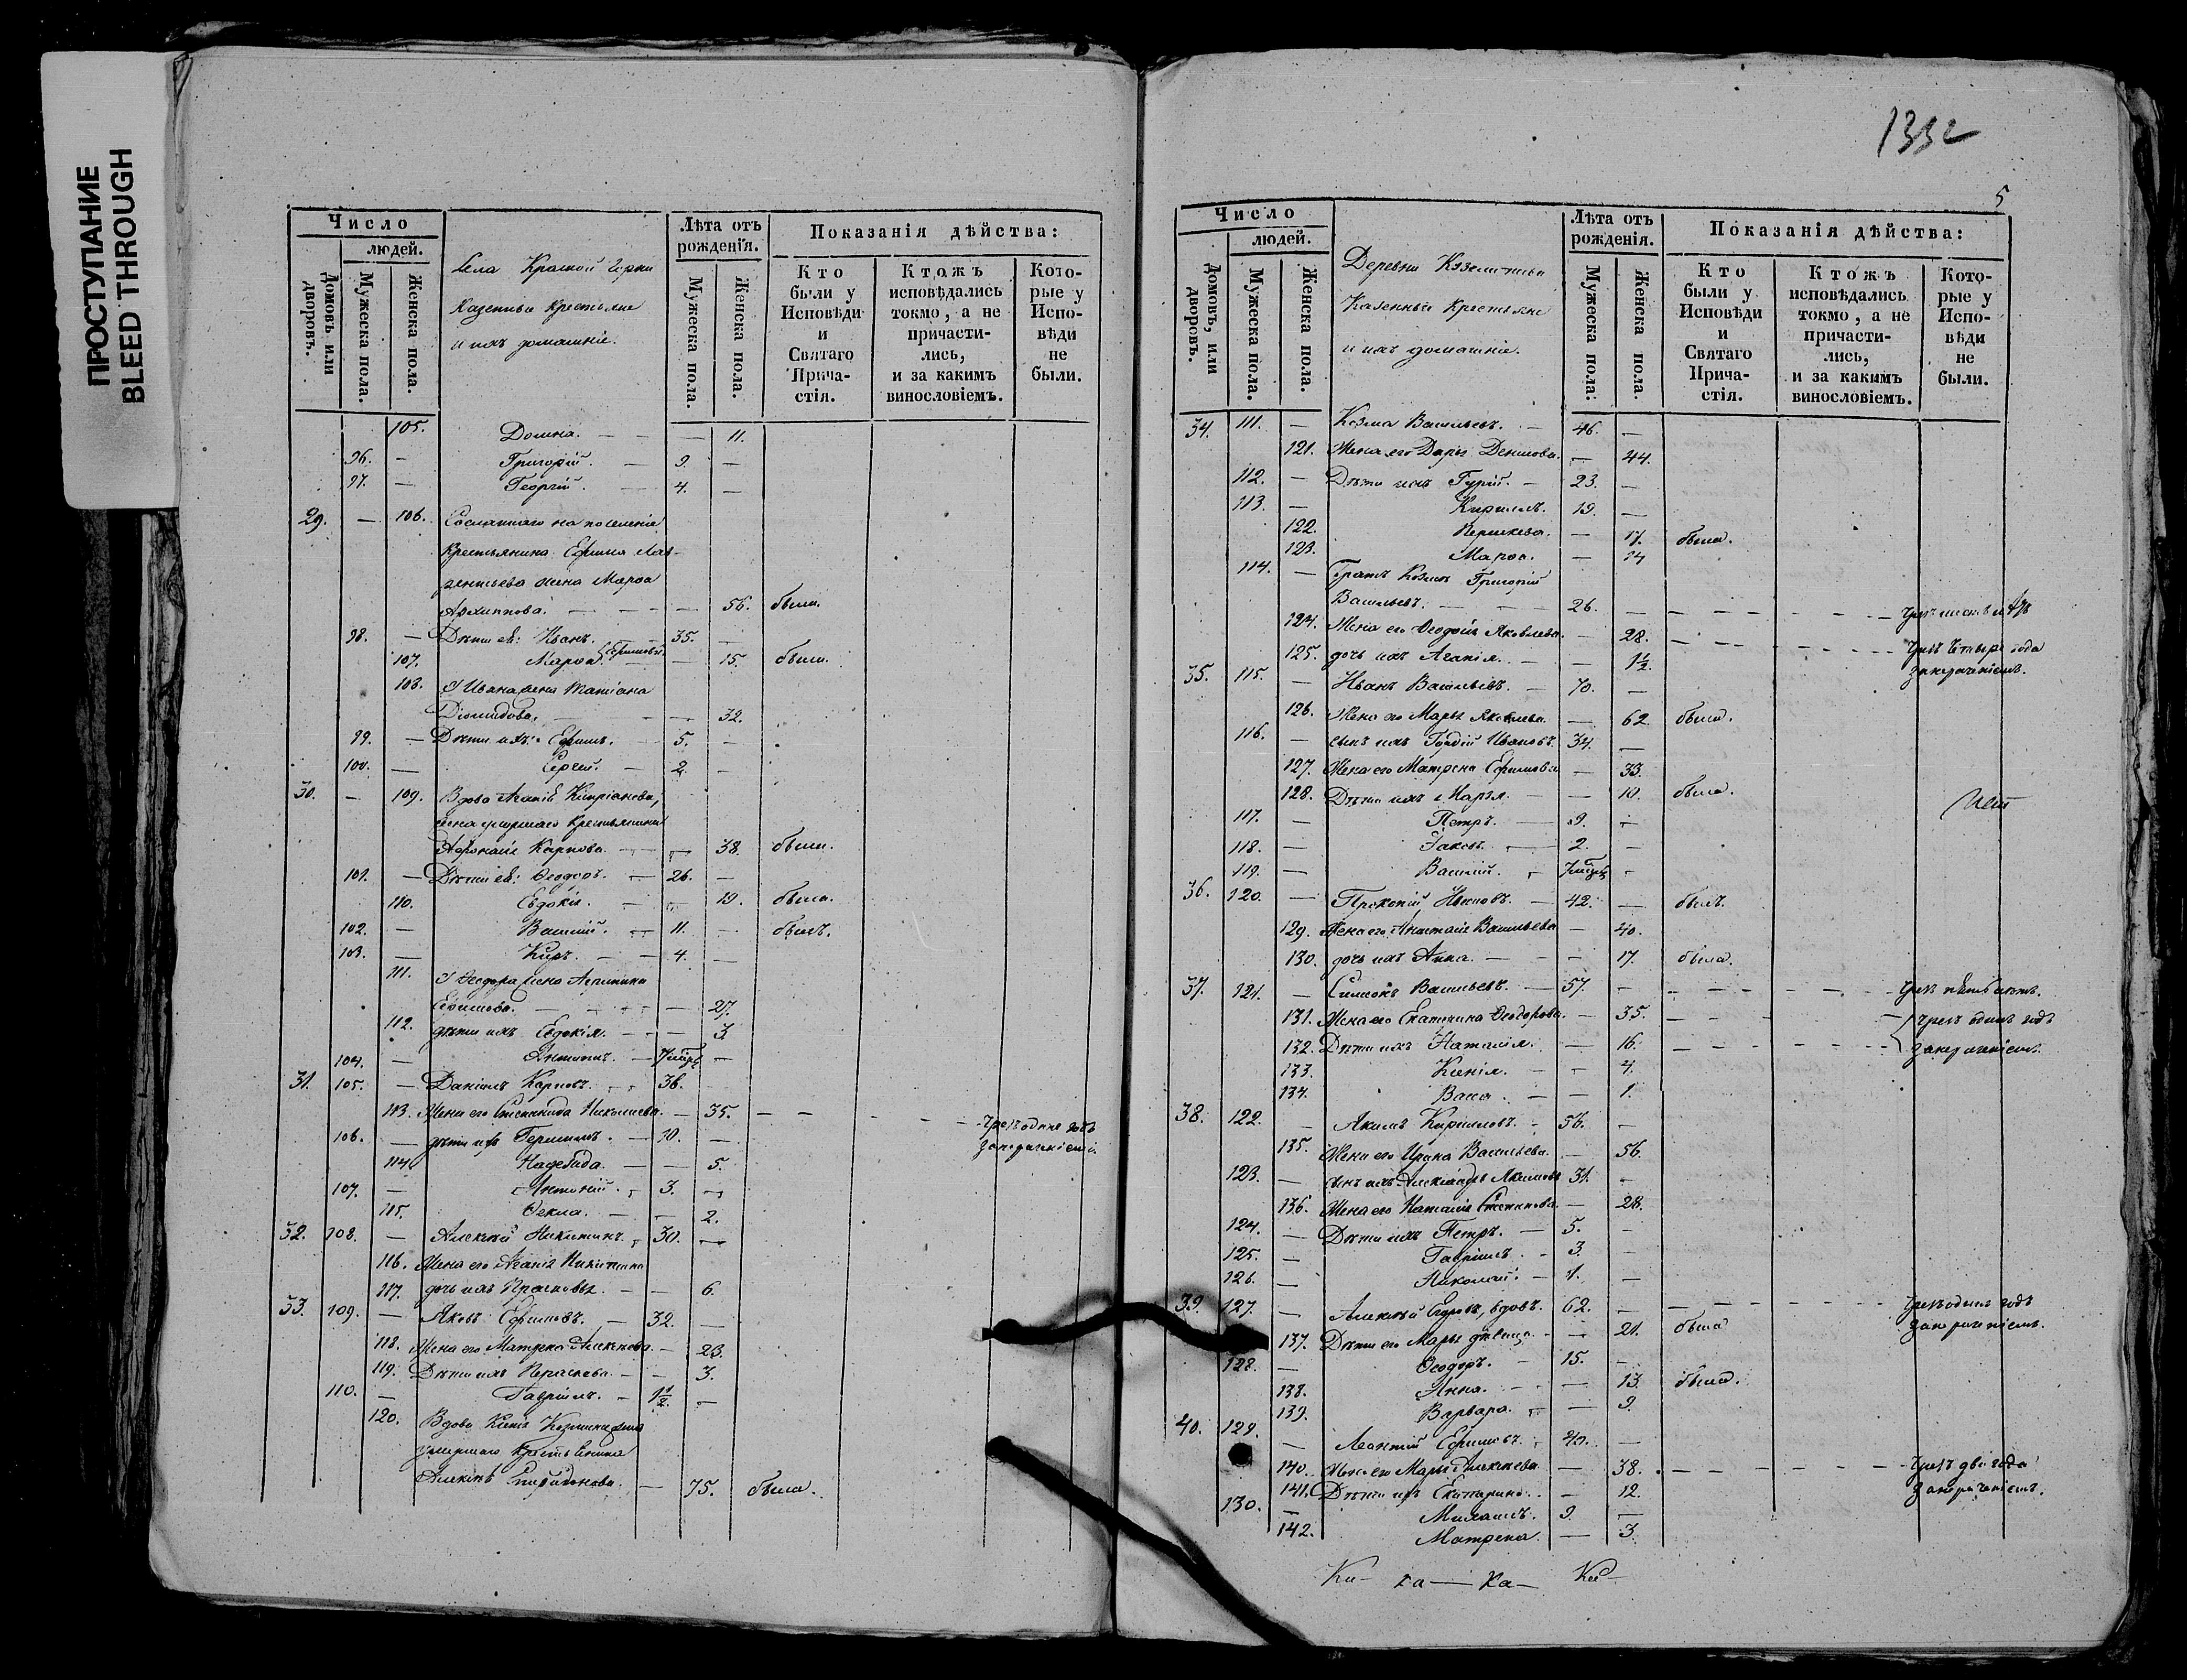 ПРОСТУПАНИЕ
BLEED THROUGH
Число
людей.
Домовъ или дворовъ.
Мужеска пола.
Женска пола.
Села Красной Горки
Казенные Крестьяне
и ихъ домашніе.
Лѣта отъ рожденія.
Мужеска пола.
Женска пола.
Показанія дѣйства:
Кто были у Исповѣди и Святаго Прича-стія.
Ктожъ исповѣдались токмо, а не причасти-лись, и за какимъ винословіемъ.
Кото-рые у Испо-вѣди не были.
105. Домна. — — — 11.
96. — Григорій. — 9. —
97. — Георгій. — 4. —
29. — 106. Сосланнаго на поселеніе
Крестьянина Ефима Лав-
рентьева жена Марѳа
Архиппова. — — — 56. была.
98. — Дѣти ея: Иванъ. — 35. —
107. Марѳа Ефимова. — 15. была.
108. У Ивана жена Татіана
Діомидова. — — 32.
99. — Дѣти ихъ: Ефимъ. — 5. —
100. — Сергій. — 2. —
30. — 109. Вдова Агапія Кипріанова,
жена умершаго Крестьянина
Аѳонасія Карпова. — — 38. была.
101. — Дѣти ея: Ѳеодоръ. — 26. —
110. Евдокія. — — 19. была.
102. — Василій. — 11. — былъ.
103. — Киръ. — — 4. —
111. У Ѳеодора жена Агрипина
Ефимова. — — — 27.
112. дѣти ихъ Евдокія. — — 3.
104. — —
31. 105. — Даніилъ Карповъ. — 36. —
113. Жена его Степанида Николаева. — 35. — — — — чрезъ одинъ годъ
106. — дѣти ихъ Германъ. — 10. — за нерадѣніемъ.
114. Надежда. — — 5.
107. — Антоній. — 3. —
115. Ѳекла. — — 2.
32. 108. — Алексѣй Никитинъ. — 30. —
116. Жена его Агапія Никитина
117. дочь ихъ Прасковья. — — 6.
33. 109. — Яковъ Ефимовъ. — 32. —
118. Жена его Матрена Алексѣева. — 23.
119. Дѣти ихъ Параскева. — — 3.
110. — Гавріилъ. — 1½ —
120. Вдова Ксенія Козмина жена
умершаго Крестьянина
Алексѣя Спиридонова. — 75. была.
1332
5
Число
людей.
Домовъ, или дворовъ.
Мужеска пола.
Женска пола.
Деревни
Казенные Крестьяне
и ихъ домашніе.
Лѣта отъ рожденія.
Мужеска пола.
Женска пола.
Показанія дѣйства:
Кто были у Исповѣди и Святаго Прича-стія.
Ктожъ исповѣдались токмо, а не причасти-лись, и за какимъ винословіемъ.
Кото-рые у Испо-вѣди не были.
34. 111. — Козма Васильевъ. — 46. —
121. Жена его Дарья Денисова. — 44.
112. — Дѣти ихъ Гурій. — 23. —
113. — Кириллъ. 19. —
122. Параскева. — 17. была.
123. Марѳа. — 14
114. — Братъ Козмы Григорій
Васильевъ. — — 26. — — — — —
124. Жена его Ѳеодосія Яковлева. — 28. — — — — чрезъ четыре года
125. дочь ихъ Агапія. — — 1½. за нерадѣніемъ.
35. 115. — Иванъ Васильевъ. — 70. —
126. Жена его Марья Яковлева — 62. была.
116. — сынъ ихъ Гордій Ивановъ. 34. —
127. Жена его Матрена Ефимова — 33.
128. Дѣти ихъ Марья. — — 10. была.
117. — Петръ. — 9. —
118. — Іаковъ. — 2. —
119. — Василій. — —
36. 120. — Прокопій Ивановъ. — 42. — былъ.
129. Жена его Анастасія Васильева — 40.
130. дочь ихъ Анна. — — — 17. была.
37. 121. — Симеонъ Васильевъ. — 57. — — — — — чрезъ пять лѣтъ.
131. Жена его Екатерина Ѳеодорова. — 35. — — — чрезъ одинъ годъ
132. Дѣти ихъ Наталія. — 16. — — — — за нерадѣніемъ.
133. Ксенія. — — 4.
134. Васса. — — 1.
38. 122. — Акимъ Кириловъ. — 56. —
135. Жена его Ирина Васильева. — 56.
123. — сынъ ихъ Александръ Акимовъ 31. —
136. Жена его Наталія Степанова. — 28.
124. — Дѣти ихъ Петръ. — 5. —
125. — Гавріилъ. — 3. —
126. — Николай. — 1. —
39. 127. — Алексѣй Егоровъ, вдовъ. 62. — — — — — чрезъ одинъ годъ
137. Дѣти его Марья дѣвица. — — 21. была за нерадѣніемъ.
128. — Ѳеодоръ. — 15. —
138. Анна. — — — 13. была.
139. Варвара. — — 9.
40. 129. — Леонтій Ефимовъ. — 40. —
140. Жена его Марья Алексѣева — 38. — — — — чрезъ два года
141. Дѣти ихъ Екатерина. — — 12. за нерадѣніемъ.
130. — Михаилъ. 9. —
142. Матрена — 3.